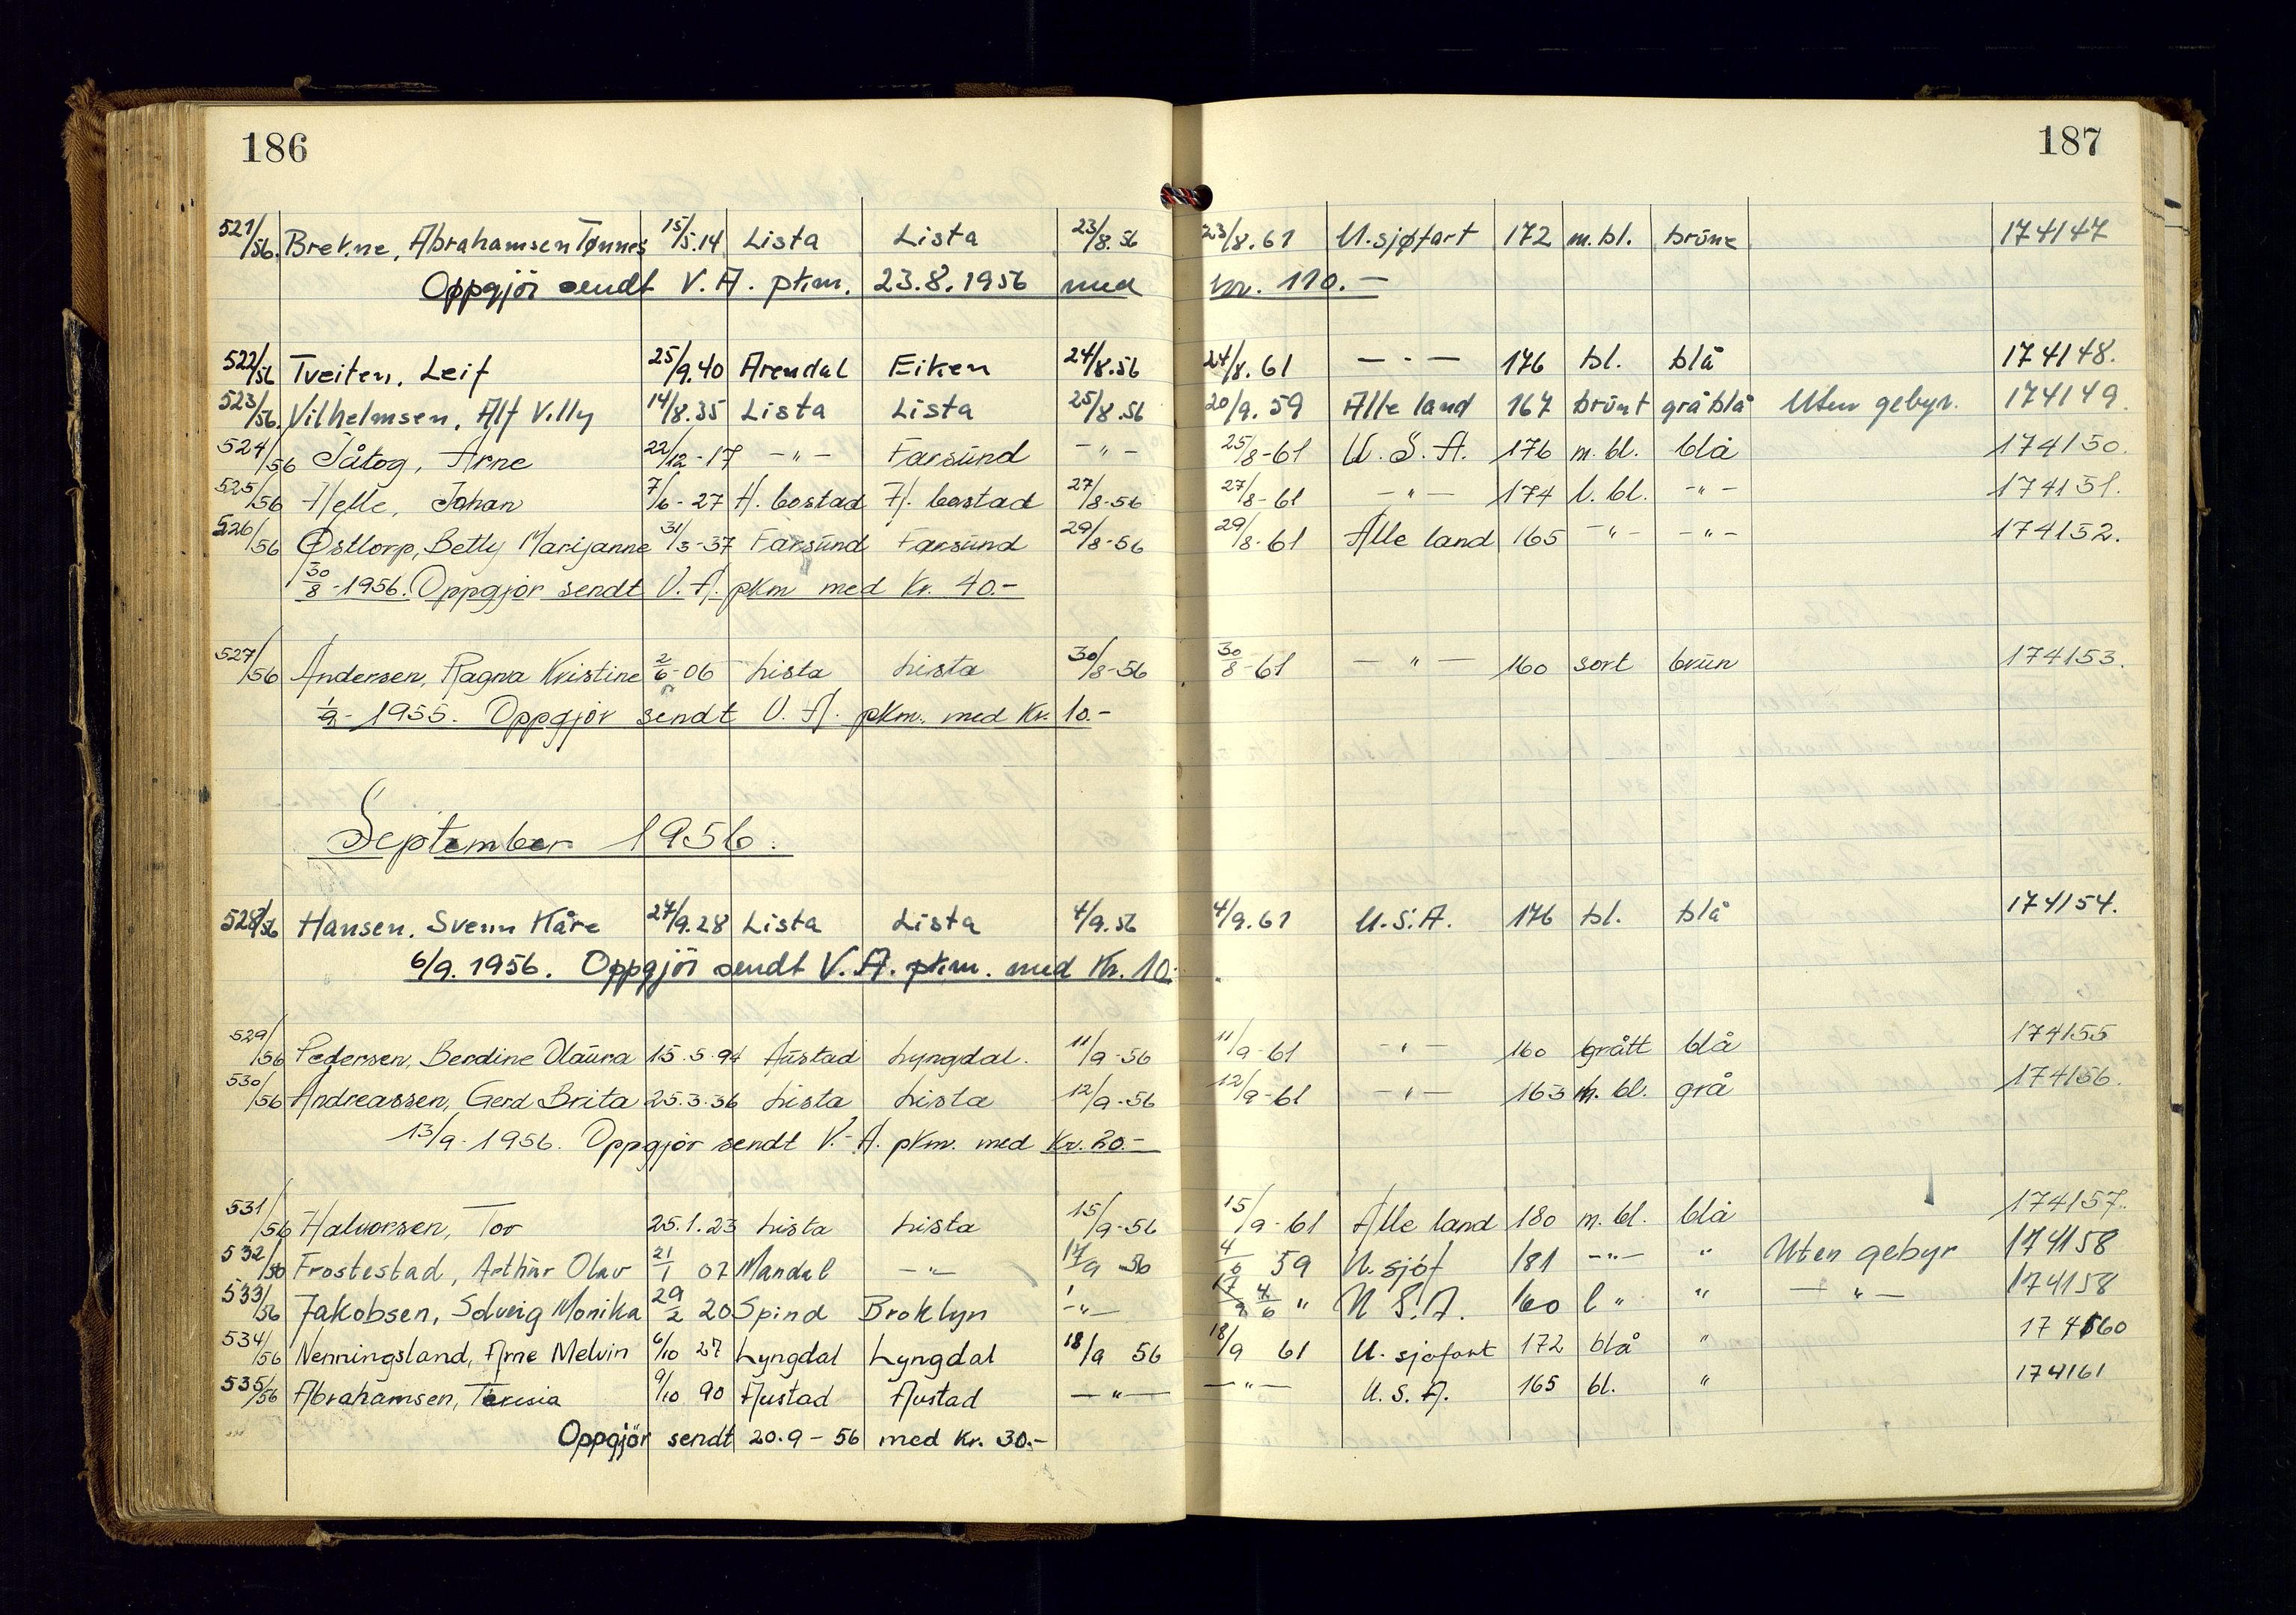 186 187
521/56. Brekne, Abrahamsen Tønnes 15/5.14 Lista Lista 23/8.56 23/8.61 U.sjøfart 172 m.bl. brune 174147
Oppgjör sendt V. A. pkm. 23.8.1956 med kr. 110.-
522/56 Tveiten, Leif 25/9.40 Arendal Eiken 24/8.56 24/8.61 — - — 176 bl. blå 174148.
523/56. Vilhelmsen, Alf Villy 14/8.35 Lista Lista 25/8.56 20/9.59 Alle land 167 brünt gråblå Uten gebyr. 174149.
524/56 Tåtog, Arne 22/12-17 -"- Farsünd -"- 25/8-61 U.S.A. 176 m.bl. blå 174150.
525/56 Helle, Johan 7/6-27 H.bostad H.bostad 27/8-56 27/8-61 -"- 174 l.bl. -"- 174151.
526/56 Østtorp, Betty Marijanne 31/3-37 Farsünd Farsünd 29/8-56 29/8-61 Alle land 165 -"- -"- 174152.
30/8-1956. Oppgjör sendt V. A. pkm med Kr. 40.-
527/56 Andersen, Ragna Kristine 2/6-06 Lista Lista 30/8-56 30/8-61 — " — 160 sort brün 174153.
1/9-1955. Oppgjör sendt V. A. pkm. med Kr. 10.-
September 1956.
528/56 Hansen, Svenn Kåre 27/9.28 Lista Lista 4/9.56 4/9.61 U.S.A. 176 bl. blå 174154.
6/9.1956. Oppgjör sendt V.A. pkm. med Kr. 10.-
529/56 Pedersen, Berdine Olaüra 15.5.94 Aüstad Lyngdal. 11/9-56 11/9-61 -"- 160 grått blå 174155
530/56 Andreassen, Gerd Brita 25.3.36 Lista Lista 12/9-56 12/9-61 -"- 163 m.bl. grå 174156.
13/9-1956. Oppgjör sendt V.-A. pkm. med Kr. 20.-
531/56 Halvorsen, Tor 25.1.23 Lista Lista 15/9-56 15/9-61 Alle land 180 m.bl. blå 174157.
532/56 Frostestad, Arthür Olav 21/1 07 Mandal -"- 17/9-56 4/6 59 U.sjöf 181 -"- " Uten gebyr 174158
533/56 Jakobsen, Solveig Monika 29/2 20 Spind Broklyn -"- 17/9 4/6 " U S.A. 160 l " " — " — 174158
534/56 Nenningsland, Arne Melvin 6/10 27 Lyngdal Lyngdal 18/9 56 18/9 61 U.sjøfart 172 blå " 174160
535/56 Abrahamsen, Teresia 9/10 90 Austad Austad —"— —"— U.S.A. 165 bl. " 174161
Oppgjör sendt 20.9-56 med Kr. 30.-